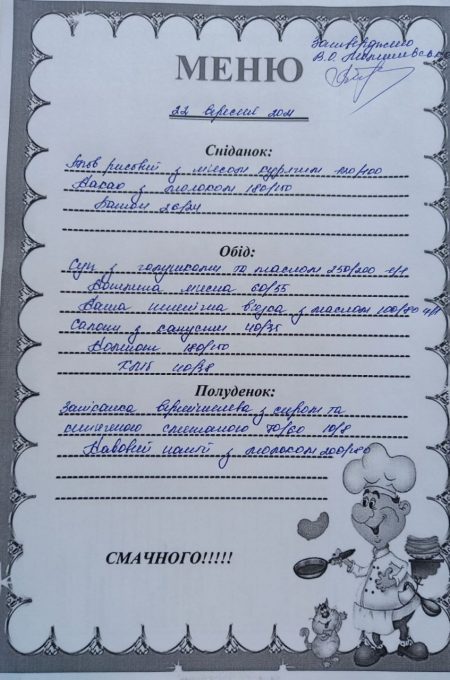 Затверджено
В.О.
МЕНЮ
22 вересня
Сніданок:
Плов рисовий з м'ясом курячим 120/100
Какао з молоком 180/150
Батон 26/24
Обід:
Суп з галушками та маслом 250/200
Котлета мясна 60/55
Каша пшенична в'язка з маслом 100/80
Салат з капусти 40/35
Компот 180/150
Хліб 40/38
Полуденок:
Запіканка вермішелева з сиром та
сметаною 70/60 10/8
Кавовий напій з молоком 200/180
СМАЧНОГО!!!!!